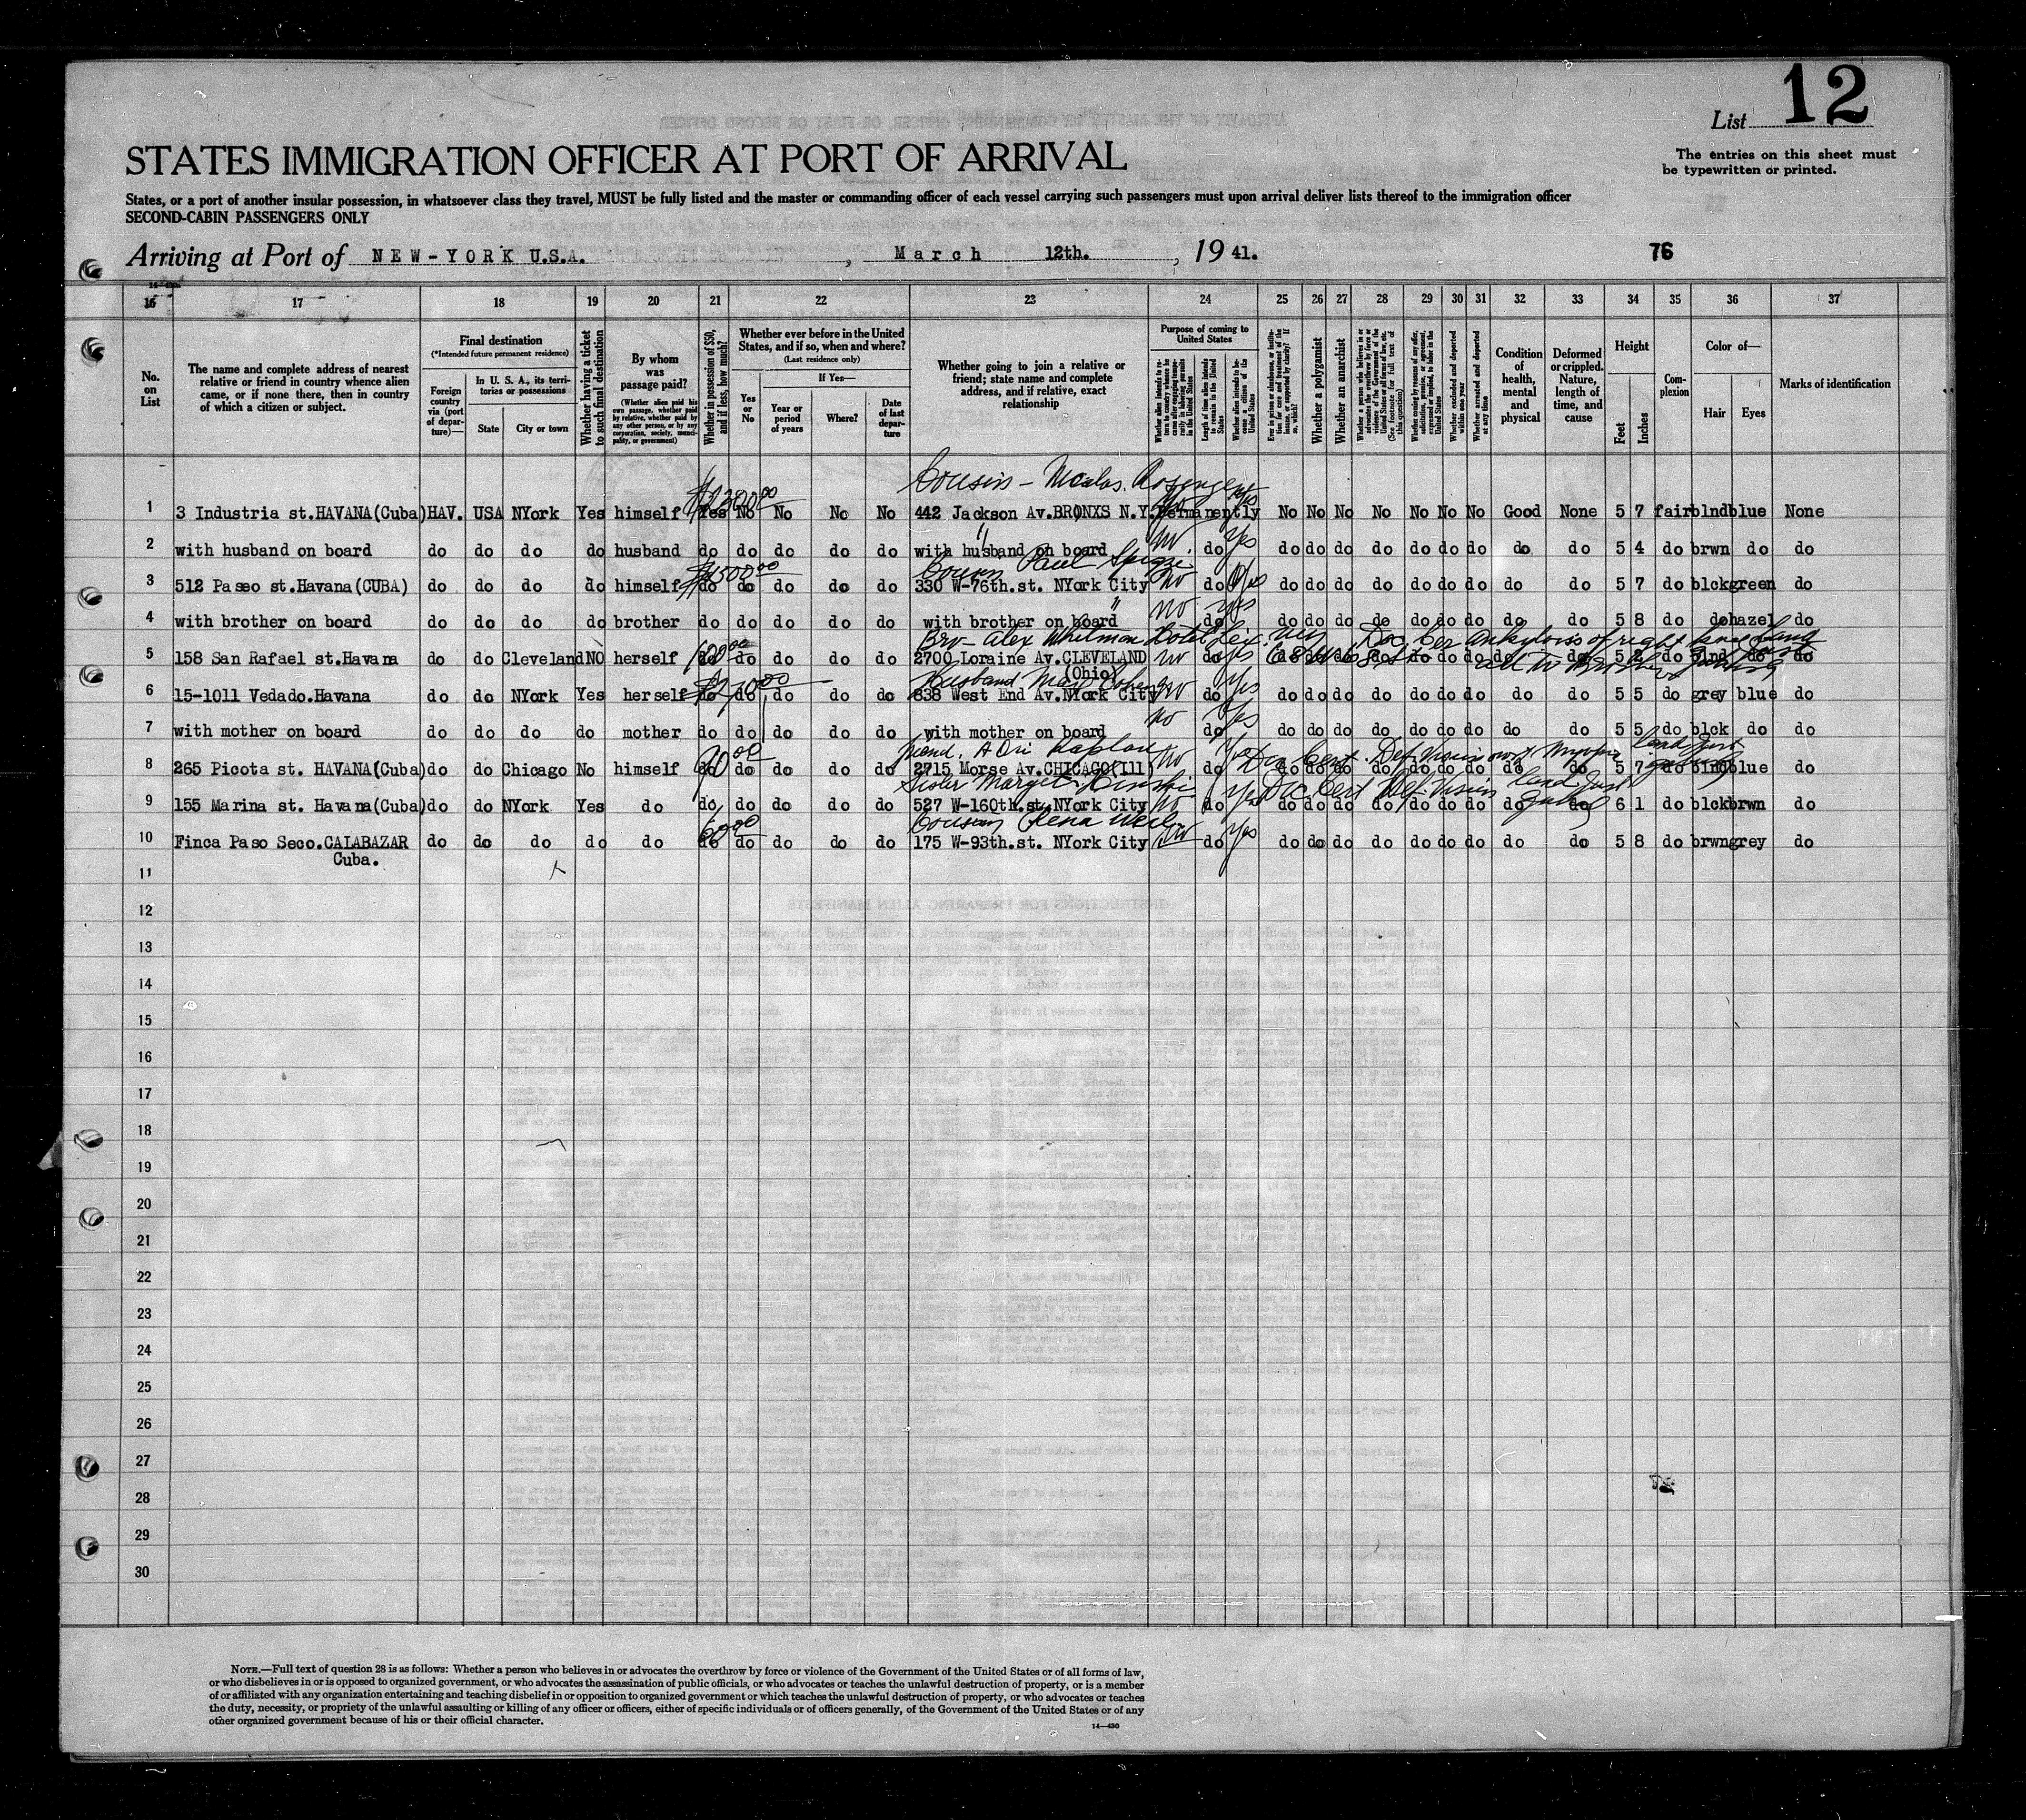 List 12
STATES IMMIGRATION OFFICER AT PORT OF ARRIVAL
The entries on this sheet must
be typewritten or printed.
States, or a port of another insular possession, in whatsoever class they travel, MUST be fully listed and the master or commanding officer of each vessel carrying such passengers must upon arrival deliver lists thereof to the immigration officer
SECOND-CABIN PASSENGERS ONLY
Arriving at Port of NEW-YORK U.S.A. , March 12th. , 19 41. 76
16 17 18 19 20 21 22 23 24 25 26 27 28 29 30 31 32 33 34 35 36 37
No. on List
The name and complete address of nearest relative or friend in country whence alien came, or if none there, then in country of which a citizen or subject.
Final destination
(*Intended future permanent residence)
Foreign country via (port of departure)—
In U. S. A., its territories or possessions
State
City or town
Whether having a ticket to such final destination
By whom was passage paid?
(Whether alien paid his own passage, whether paid by relative, whether paid by any other person, or by any corporation, society, municipality, or government)
Whether in possession of $50, and if less, how much?
Whether ever before in the United States, and if so, when and where?
(Last residence only)
Yes or No
If Yes—
Year or period of years
Where?
Date of last departure
Whether going to join a relative or friend; state name and complete address, and if relative, exact relationship
Purpose of coming to United States
Length of time alien intends to remain in the United States
Whether alien intends to become a citizen of the United States
Whether a polygamist
Whether an anarchist
Whether excluded and deported within one year
Whether arrested and deported at any time
Condition of health, mental and physical
Deformed or crippled. Nature, length of time, and cause
Height
Feet
Inches
Complexion
Color of—
Hair
Eyes
Marks of identification
Cousin – Nicolas
$2300.00
1 3 Industria st.HAVANA(Cuba) HAV. USA NYork Yes himself Yes No No No No 442 Jackson Av.BRONXS N.Y. Permanently Yes No No No No No No No Good None 5 7 fair blnd blue None
2 with husband on board do do do do husband do do do do do with husband on board no do Yes do do do do do do do do do 5 4 do brwn do do
Cousin Paul
$1500.00
3 512 Paseo st.Havana(CUBA) do do do do himself do do do do do 330 W-76th.st. NYork City no do Yes do do do do do do do do do 5 7 do blck green do
4 with brother on board do do do do brother do do do do do with brother on board no do yes do do do do do do do do do 5 8 do do hazel do
Bro- Alex Whitman Hotel
Doc Cer ankylosis of right knee
5 158 San Rafael st.Havana do do Cleveland NO herself do do do do do 2700 Loraine Av.CLEVELAND (Ohio) no do yes do do do do do do do do do 5 2 do blnd do do
Husband Max Cohen
6 15-1011 Vedado.Havana do do NYork Yes herself do do do do do 838 West End Av.NYork City no do Yes do do do do do do do do do 5 5 do grey blue do
7 with mother on board do do do do mother do do do do do with mother on board no do Yes do do do do do do do do do 5 5 do blck do do
friend. Kaplan
8 265 Picota st. HAVANA(Cuba) do do Chicago No himself do do do do do 2715 Morse Av.CHICAGO(Ill) no do do do do do do do do do do 5 7 do blnd blue do
Sister Marget
9 155 Marina st. Havana(Cuba) do do NYork Yes do do do do do do 527 W-160th.st.NYork City no do Yes do do do do do do do do do 6 1 do blck brwn do
Cousin Rena
60.00
10 Finca Paso Seco.CALABAZAR do do do do do do do do do do 175 W-93th.st. NYork City no do Yes do do do do do do do do do 5 8 do brwn grey do
Cuba.
11
12
13
14
15
16
17
18
19
20
21
22
23
24
25
26
27
28
29
30
NOTE.—Full text of question 28 is as follows: Whether a person who believes in or advocates the overthrow by force or violence of the Government of the United States or of all forms of law,
or who disbelieves in or is opposed to organized government, or who advocates the assassination of public officials, or who advocates or teaches the unlawful destruction of property, or is a member
of or affiliated with any organization entertaining and teaching disbelief in or opposition to organized government or which teaches the unlawful destruction of property, or who advocates or teaches
the duty, necessity, or propriety of the unlawful assaulting or killing of any officer or officers, either of specific individuals or of officers generally, of the Government of the United States or of any
other organized government because of his or their official character.
14—430